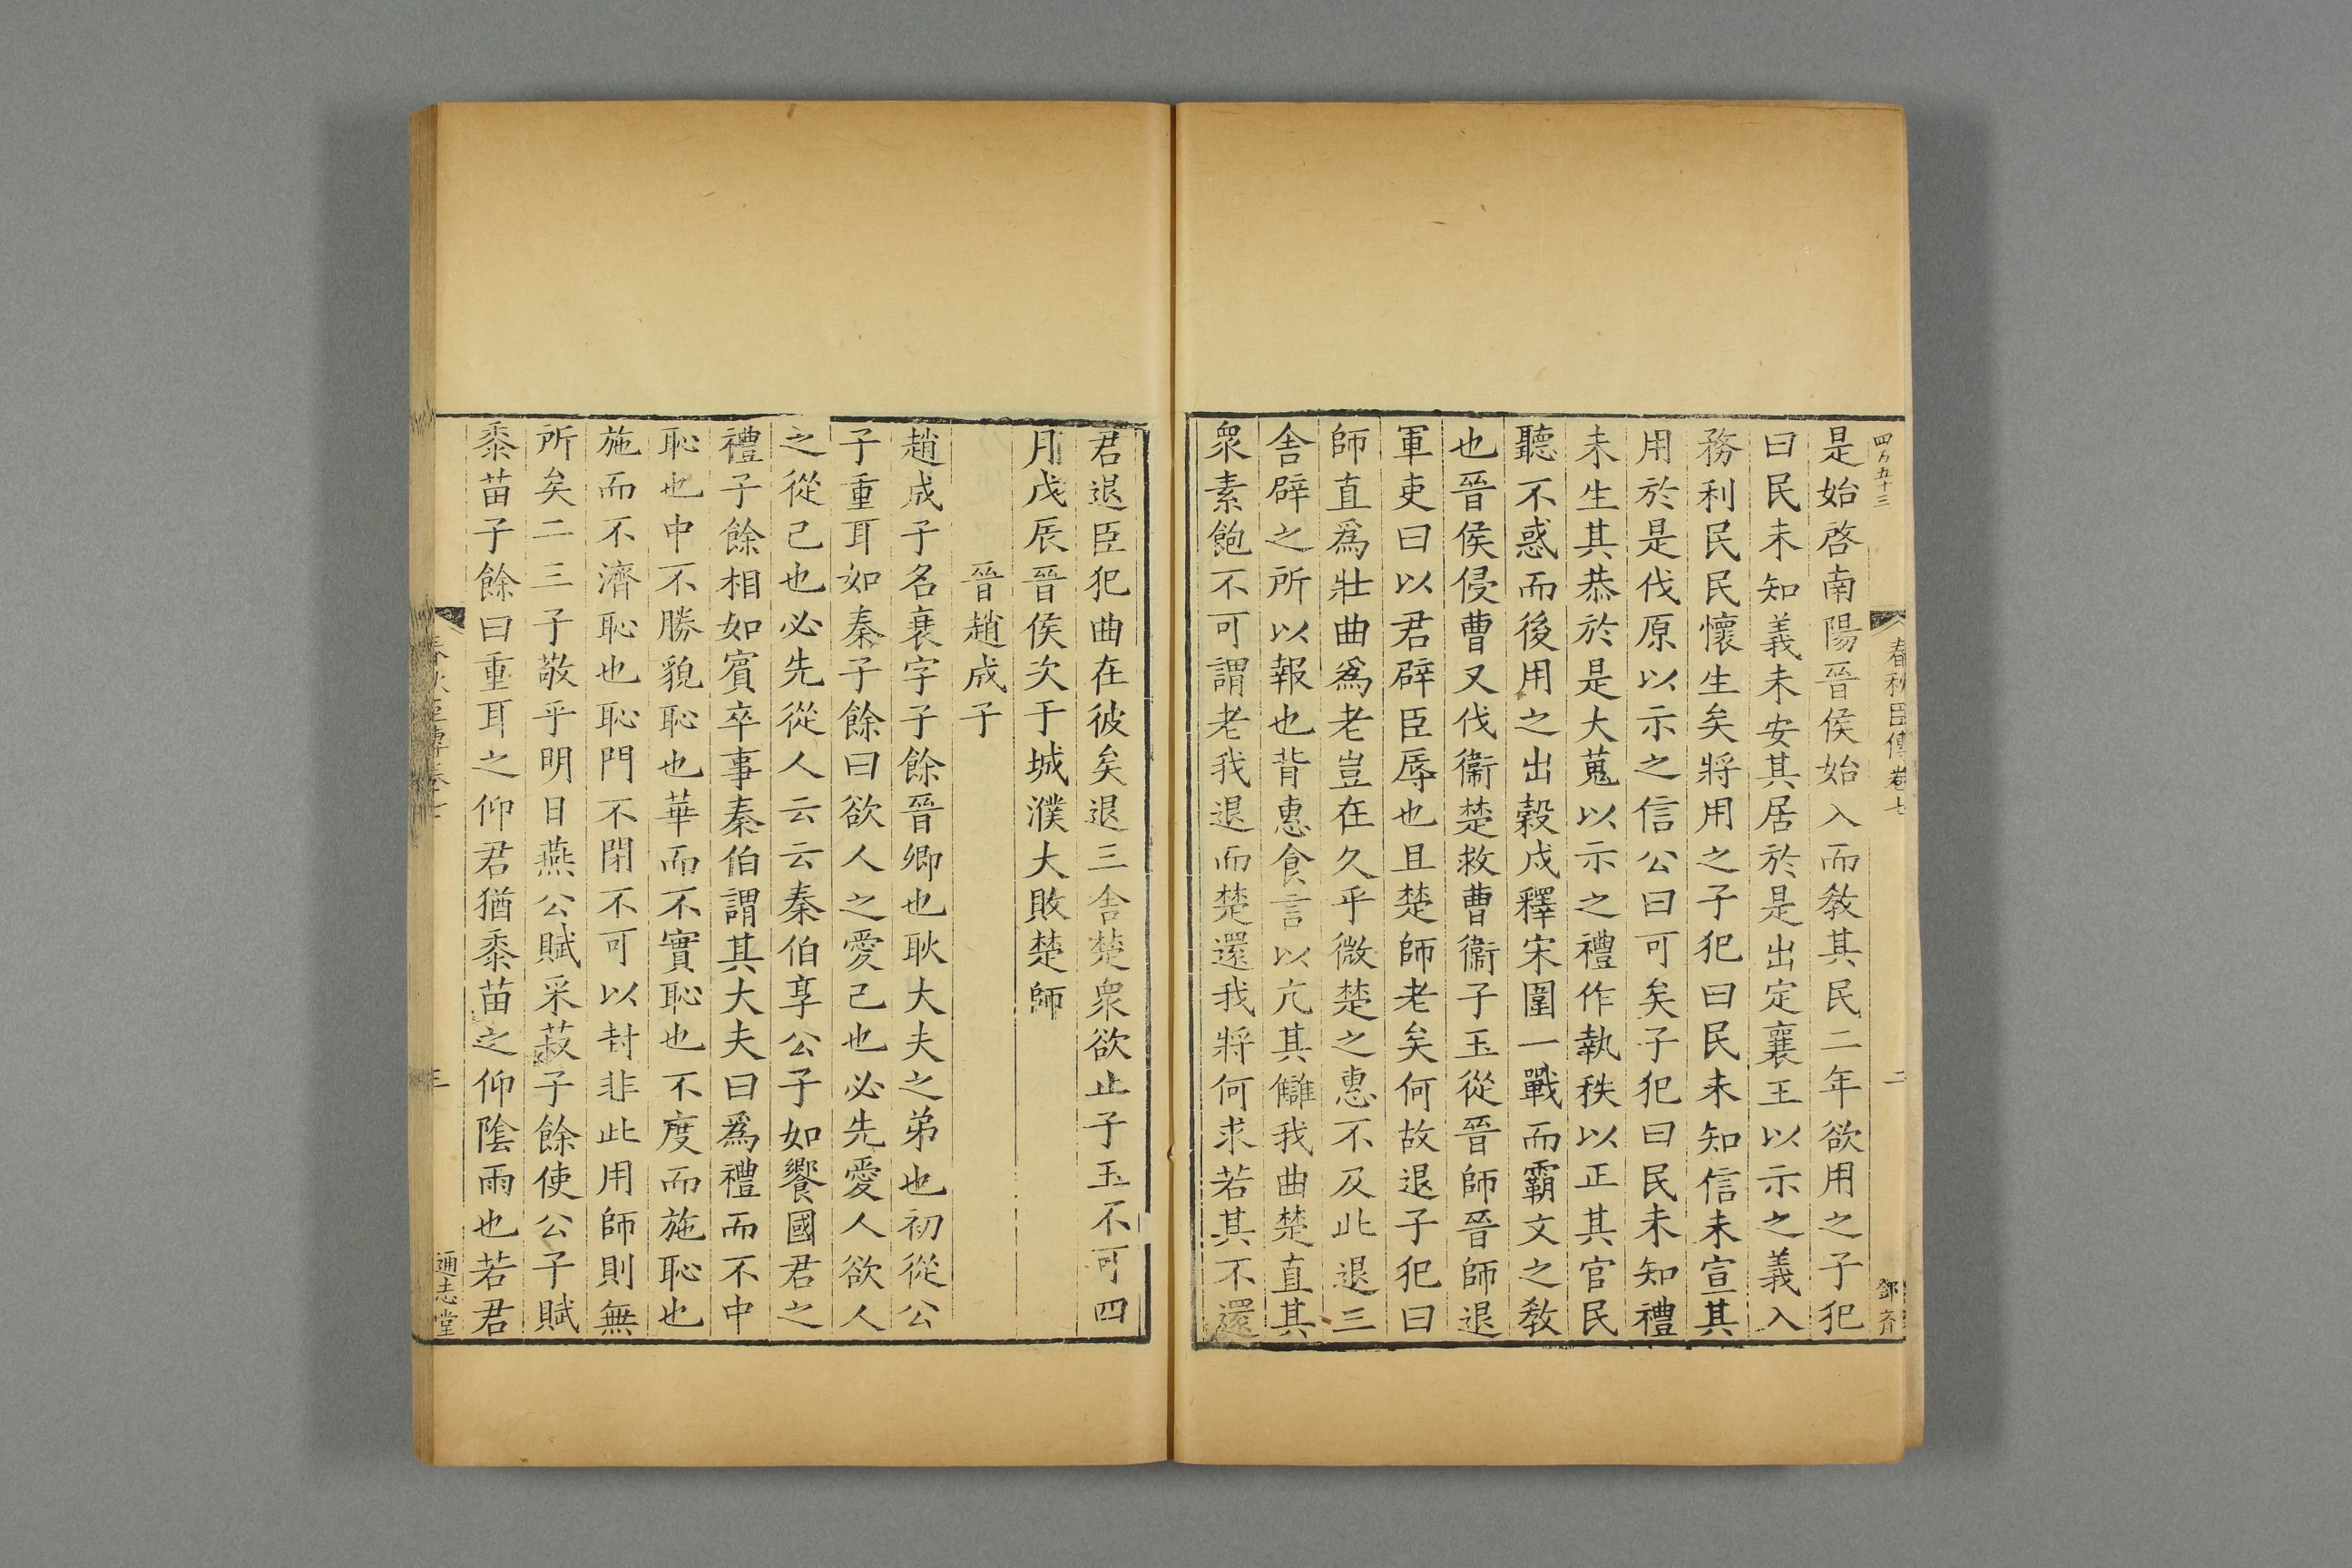 四百五十三
春秋臣傳卷七
二
鄧齐
是始啓南陽晉侯始入而敎其民二年欲用之子犯
曰民未知義未安其居於是出定襄王以示之義入
務利民民懷生矣將用之子犯曰民未知信未宣其
用於是伐原以示之信公曰可矣子犯曰民未知禮
未生其恭於是大蒐以示之禮作執秩以正其官民
聽不惑而後用之出穀戍釋宋圍一戰而霸文之敎
也晉侯侵曹又伐衞楚救曹衞子玉從晉師晉師退
軍吏曰以君辟臣辱也且楚師老矣何故退子犯曰
師直爲壯曲爲老豈在久乎微楚之惠不及此退三
舍辟之所以報也背惠食言以亢其讎我曲楚直其
衆素飽不可謂老我退而楚還我將何求若其不還
君退臣犯曲在彼矣退三舍楚衆欲止子玉不可四
月戊辰晉侯次于城濮大敗楚師
晉趙成子
趙成子名衰字子餘晉卿也耿大夫之弟也初從公
子重耳如秦子餘曰欲人之愛己也必先愛人欲人
之從己也必先從人云云秦伯享公子如饗國君之
禮子餘相如賓卒事秦伯謂其大夫曰爲禮而不中
恥也中不勝貌恥也華而不實恥也不度而施恥也
施而不濟恥也恥門不閉不可以封非此用師則無
所矣二三子敬乎明日燕公賦采菽子餘使公子賦
黍苗子餘曰重耳之仰君猶黍苗之仰陰雨也若君
春秋臣傳卷七
三
通志堂